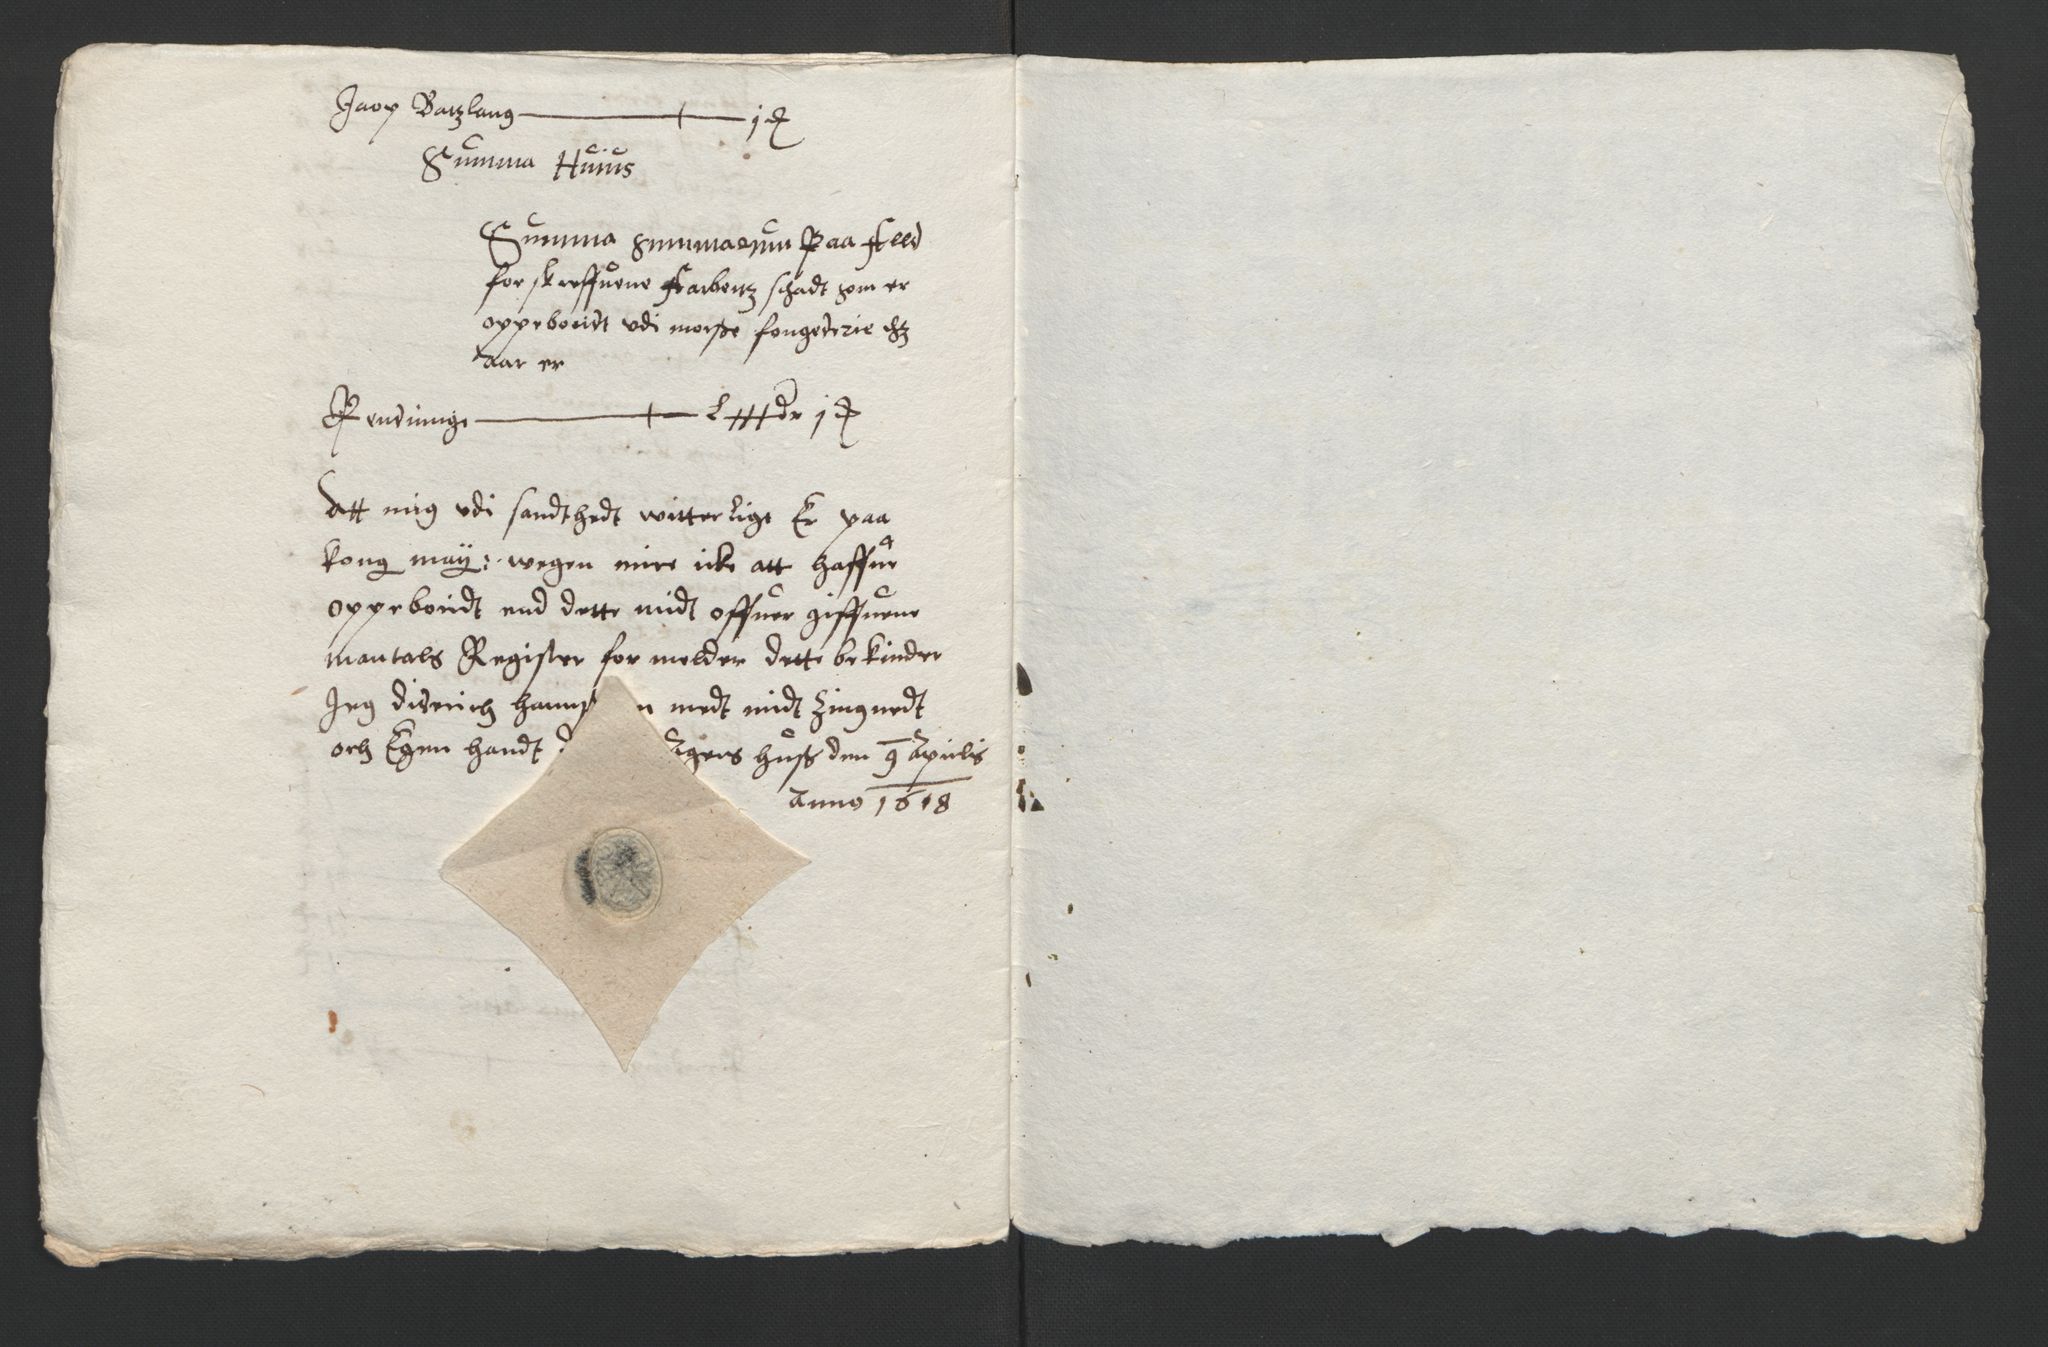 Jacop Batzlaug — 1 d
Summa Huius
Summa summarum Paa Alld
for skreffuene Arbeitz schadt som er
oppeboridt udi morsze fougederie
aar er
Pendinnge — dr 1
Att mig udi sandthedt witterlige Er paa
kong may: wegen mire icke att haffue
oppeboridt end dette midt offuer giffuene
mantals Register for melder dette bekinder
Jeg diderich med midt Zingnedt
och Egen handt husz den 9 Aprilis
Anno 1618